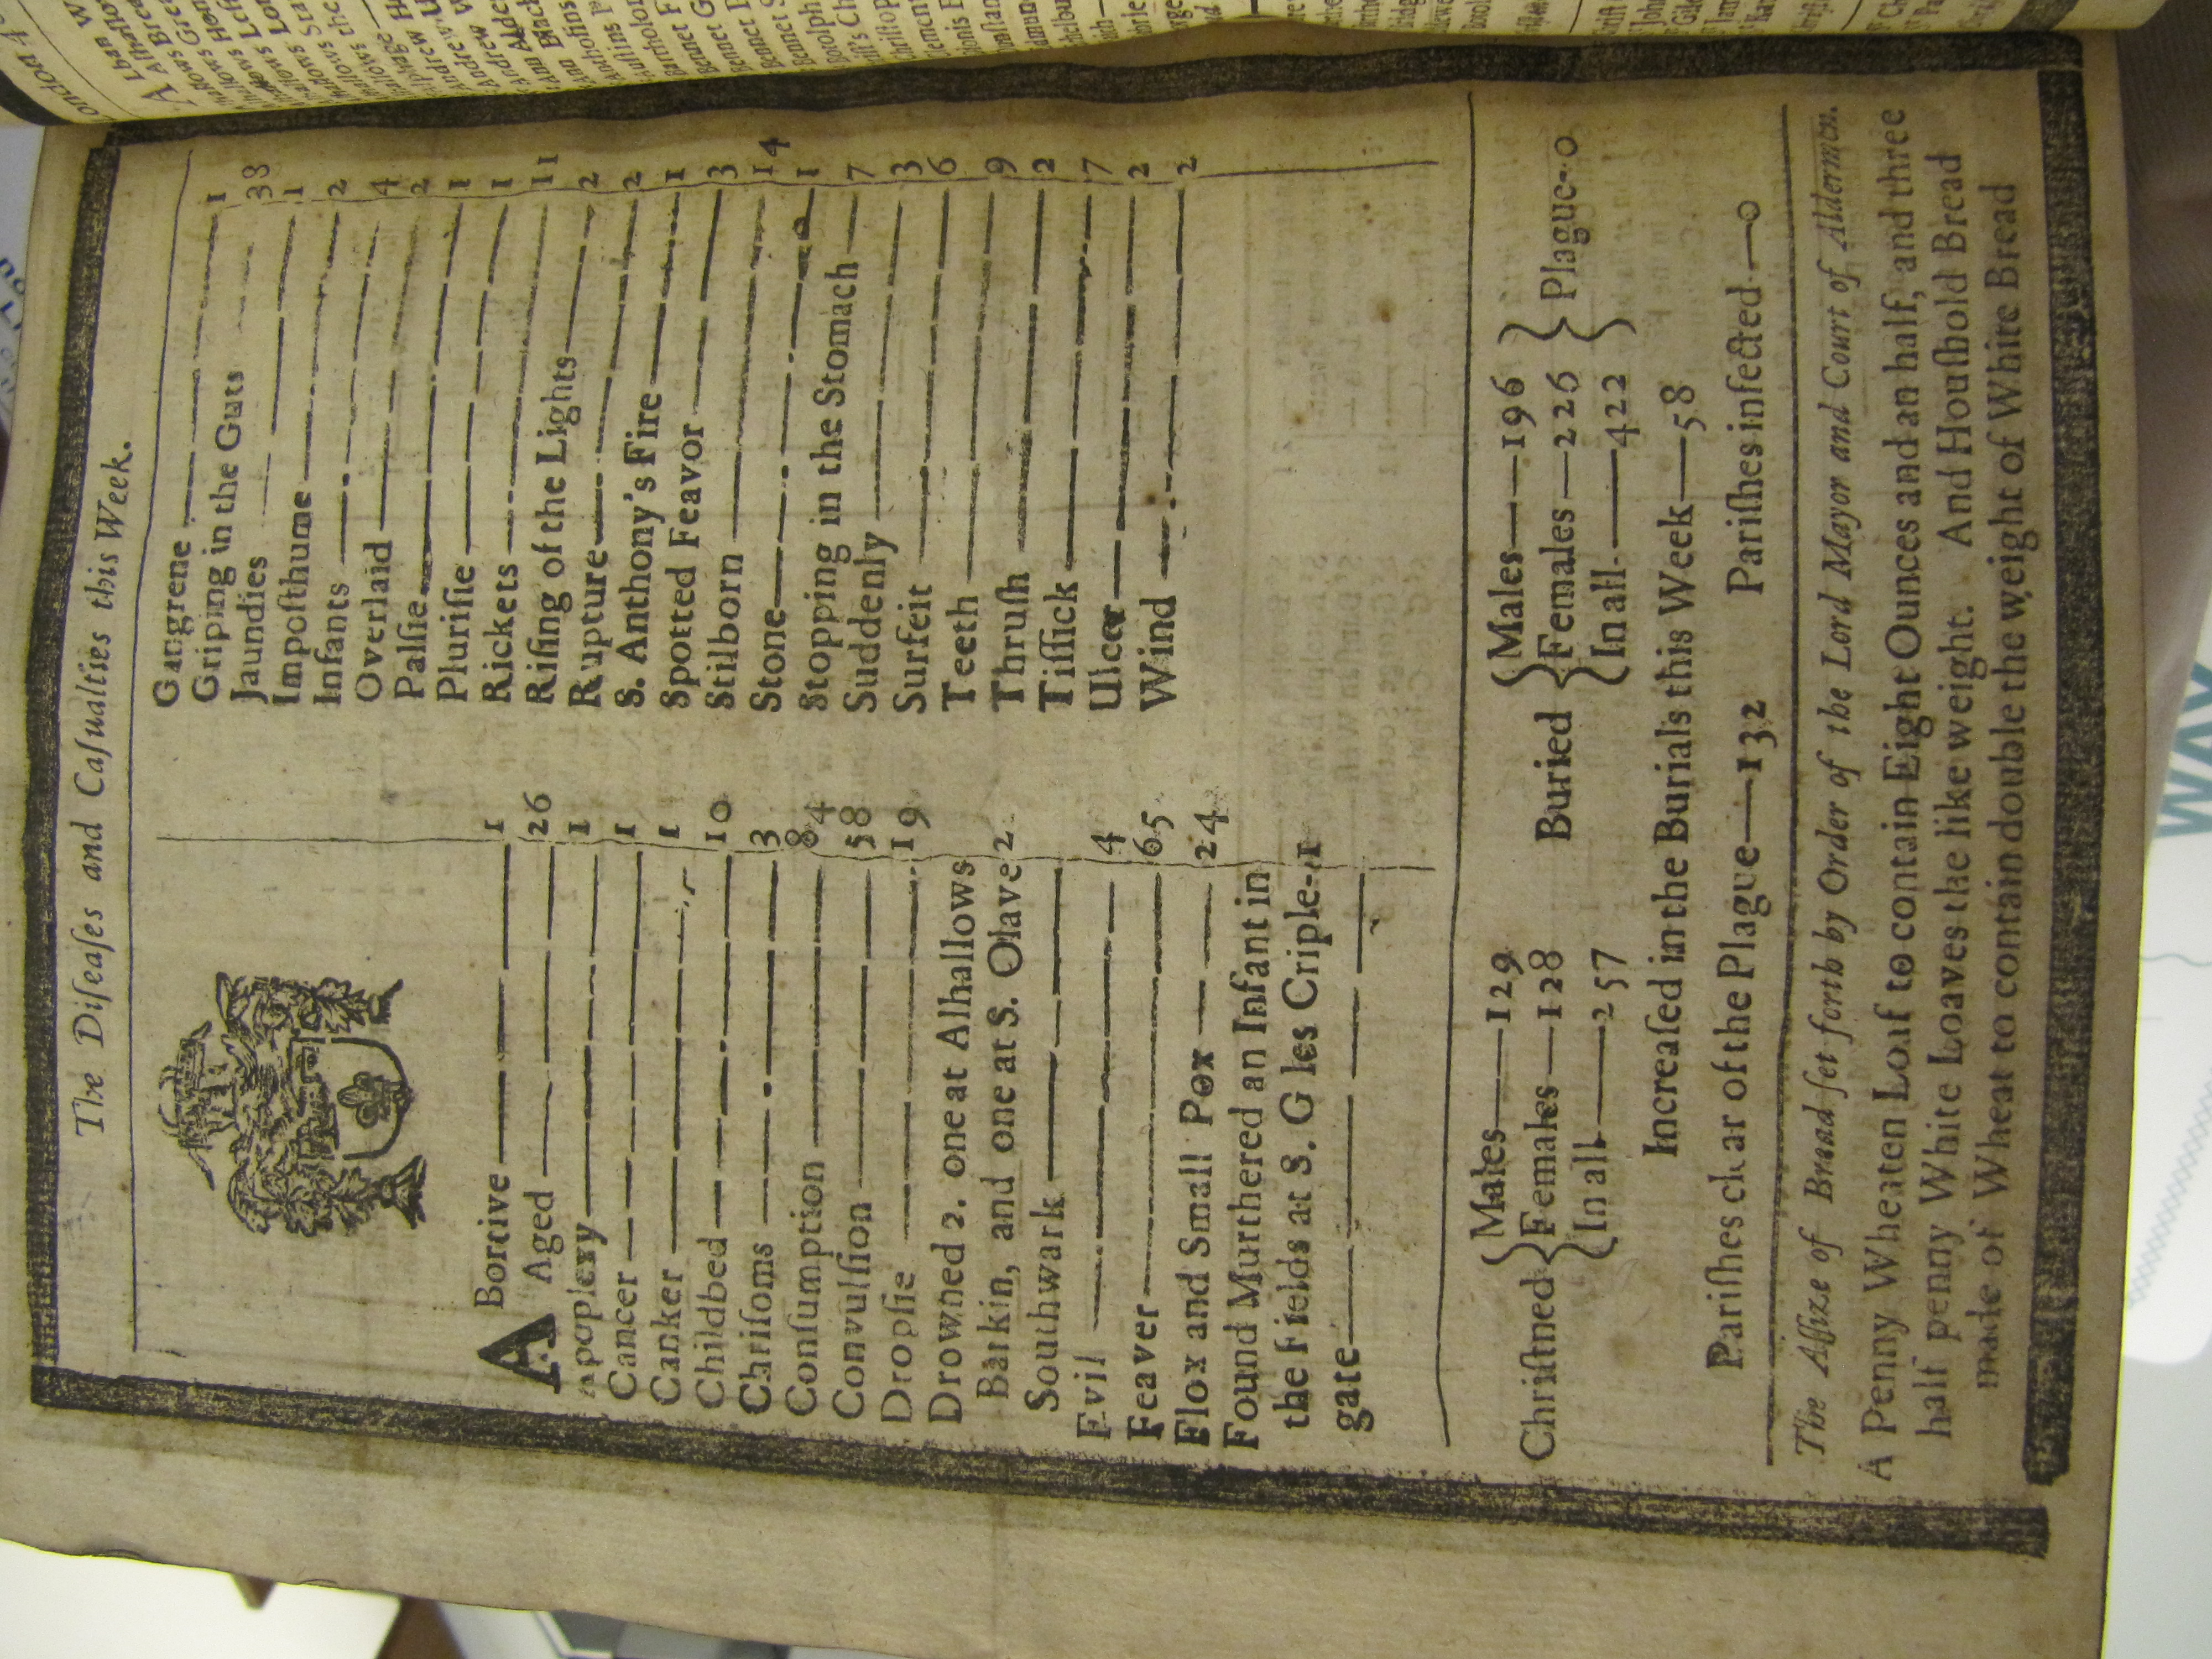 The Diſeaſes and Caſualties this Week.
A Bortive 1
Aged 26
Apoplexy 1
Cancer 1
Canker 1
Childbed 10
Chriſoms 3
Conſumption 84
Convulſion 58
Dropſie 19
Drowned 2. one at Alhallows
Barkin, and one at S. Olave 2
Southwark
Evil 4
Feaver 65
Flox and Small Pox 24
Found Murthered an Infant in
the Fields at S. G les Criple- 1
gate
Gangrene 1
Griping in the Guts 38
Jaundies 1
Impoſthume 2
Infants 4
Overlaid 2
Palſie 1
Pluriſie 1
Rickets 11
Riſing of the Lights 2
Rupture 2
S. Anthony's Fire 1
Spotted Feavor 3
Stilborn 14
Stone 1
Stopping in the Stomach 7
Suddenly 3
Surfeit 6
Teeth 9
Thruſh 2
Tiſſick 7
Ulcer 2
Wind 2
Chriſtned { Males—129 Females—128 In all—257
Buried { Males—196 Females—226 In all—422 } Plague--0
Increaſed in the Burials this Week—58
Pariſhes clear of the Plague—132 Pariſhes infected—0
The Aſſize of Bread ſet forth by Order of the Lord Mayor and Court of Aldermen.
A Penny Wheaten Loaf to contain Eight Ounces and an half, and three
half penny White Loaves the like weight. And Houſhold Bread
made of Wheat to contain double the weight of White Bread